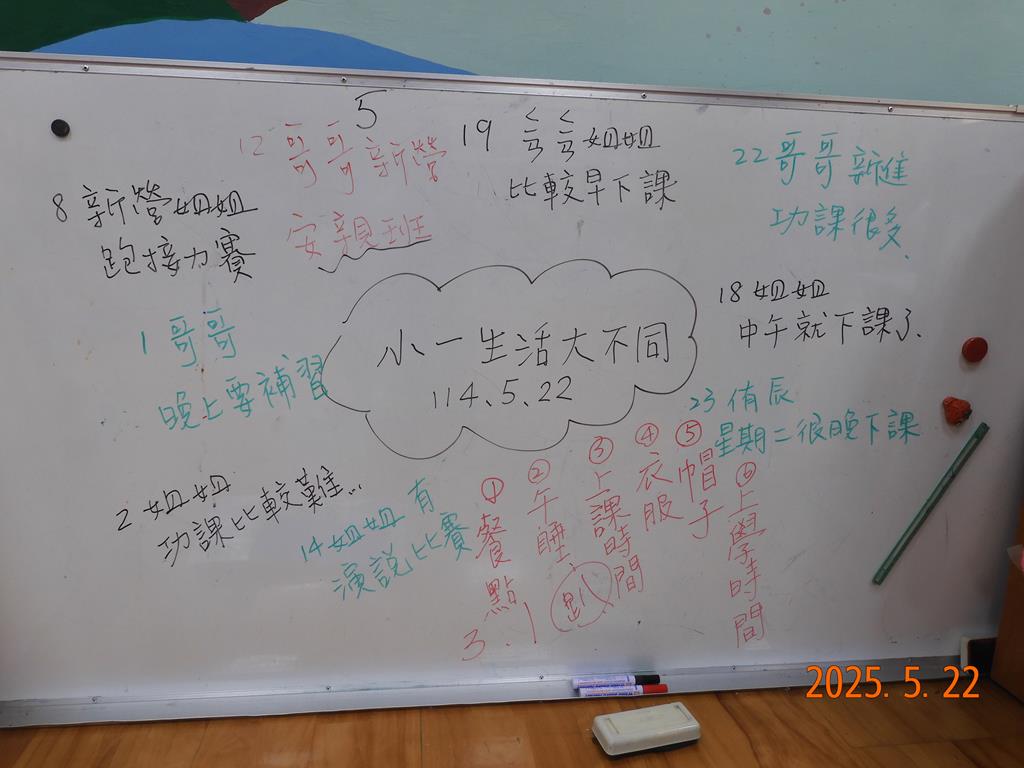 5
12 哥哥新營
安親班
19 ㄑㄑ姐姐
比較早下課
22 哥哥新進
功課很多.
8 新營姐姐
跑接力賽
18 姐姐
中午就下課了.
1 哥哥
晚上要補習
小一生活大不同
114.5.22
23 侑辰
星期二很晚下課
2 姐姐
功課比較難...
14 姐姐有
演說比賽
①餐點
3.1
②午睡、趴
③上課時間
④衣服
⑤帽子
⑥上學時間
2025. 5. 22